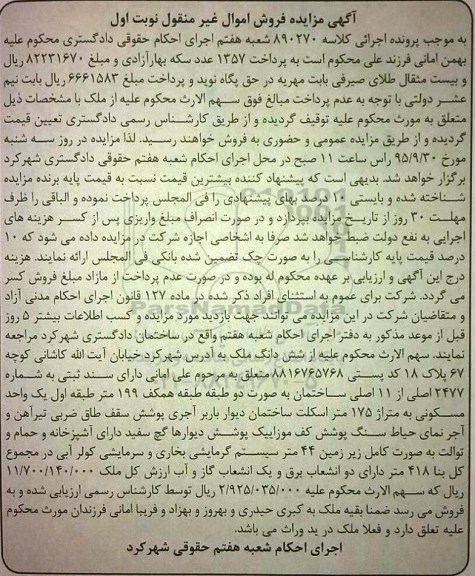 آگهی مزایده فروش اموال غیر منقول نوبت اول
به موجب پرونده اجرائی کلاسه ۸۹۰۲۷۰ شعبه هفتم اجرای احکام حقوقی دادگستری محکوم علیه
بهمن امانی فرزند علی محکوم است به پرداخت ۱۳۵۷ عدد سکه بهار آزادی و مبلغ ۸۲۲۳۱۶۷۰ ریال
و بیست مثقال طلای صیرفی بابت مهریه در حق پگاه نوید و پرداخت مبلغ ۶۶۶۱۵۸۳ ریال بابت نیم
عشر دولتی با توجه به عدم پرداخت مبالغ فوق سهم الارث محکوم علیه از ملک با مشخصات ذیل
متعلق به مورث محکوم علیه توقیف گردیده و از طریق کارشناس رسمی دادگستری تعیین قیمت
گردیده و از طریق مزایده عمومی و حضوری به فروش خواهند رسید. لذا مزایده در روز سه شنبه
مورخ ۹۵/۹/۳۰ راس ساعت ۱۱ صبح در محل اجرای احکام شعبه هفتم حقوقی دادگستری شهرکرد
برگزار خواهد شد. بدیهی است که پیشنهاد کننده بیشترین قیمت نسبت به قیمت پایه برنده مزایده
شناخته شده و بایستی ۱۰ درصد بهای پیشنهادی را فی المجلس پرداخت نموده و الباقی را ظرف
مهلت ۳۰ روز از تاریخ مزایده بپردازد و در صورت انصراف مبلغ واریزی پس از کسر هزینه های
اجرایی به نفع دولت ضبط خواهد شد صرفا به اشخاصی اجازه شرکت در مزایده داده می شود که ۱۰
درصد قیمت پایه کارشناسی را به صورت چک تضمین شده بانکی فی المجلس ارائه نمایند. هزینه
درج این آگهی و ارزیابی بر عهده محکوم له بوده و در صورت عدم پرداخت از مازاد مبلغ فروش کسر
می گردد. شرکت برای عموم به استثنای افراد ذکر شده در ماده ۱۲۷ قانون اجرای احکام مدنی آزاد
و متقاضیان شرکت در این مزایده می توانند جهت بازدید مورد مزایده و کسب اطلاعات بیشتر ۵ روز
قبل از موعد مذکور به دفتر اجرای احکام شعبه هفتم واقع در ساختمان دادگستری شهرکرد مراجعه
نمایند. سهم الارث محکوم علیه از شش دانگ ملک به آدرس شهرکرد خیابان آیت الله کاشانی کوچه
۶۷ پلاک ۱۸ کد پستی ۸۸۱۶۷۶۵۷۶۸ متعلق به مرحوم علی امانی دارای سند ثبتی به شماره
۲۴۷۷ اصلی از ۱۱ اصلی ساختمان به صورت دو طبقه طبقه همکف ۱۹۹ متر طبقه اول یک واحد
مسکونی به متراژ ۱۷۵ متر اسکلت ساختمان دیوار باربر آجری پوشش سقف طاق ضربی تیرآهن و
آجر نمای حیاط سنگ پوشش کف موزاییک پوشش دیوارها گچ سفید دارای آشپزخانه و حمام و
توالت به صورت کامل زیر زمین ۴۴ متر سیستم گرمایشی بخاری و سرمایشی کولر آبی در مجموع
کل بنا ۴۱۸ متر دارای دو انشعاب برق و یک انشعاب گاز و آب ارزش کل ملک ۱۱/۷۰۰/۱۴۰/۰۰۰
ریال که سهم الارث محکوم علیه ۲/۹۲۵/۰۳۵/۰۰۰ ریال توسط کارشناس رسمی ارزیابی شده و به
فروش می رسد ضمنا بقیه ملک به کبری حیدری و بهروز و بهزاد و فریبا امانی فرزندان مورث محکوم
علیه تعلق دارد و فعلا ملک در ید وراث می باشد.
اجرای احکام شعبه هفتم حقوقی شهرکرد